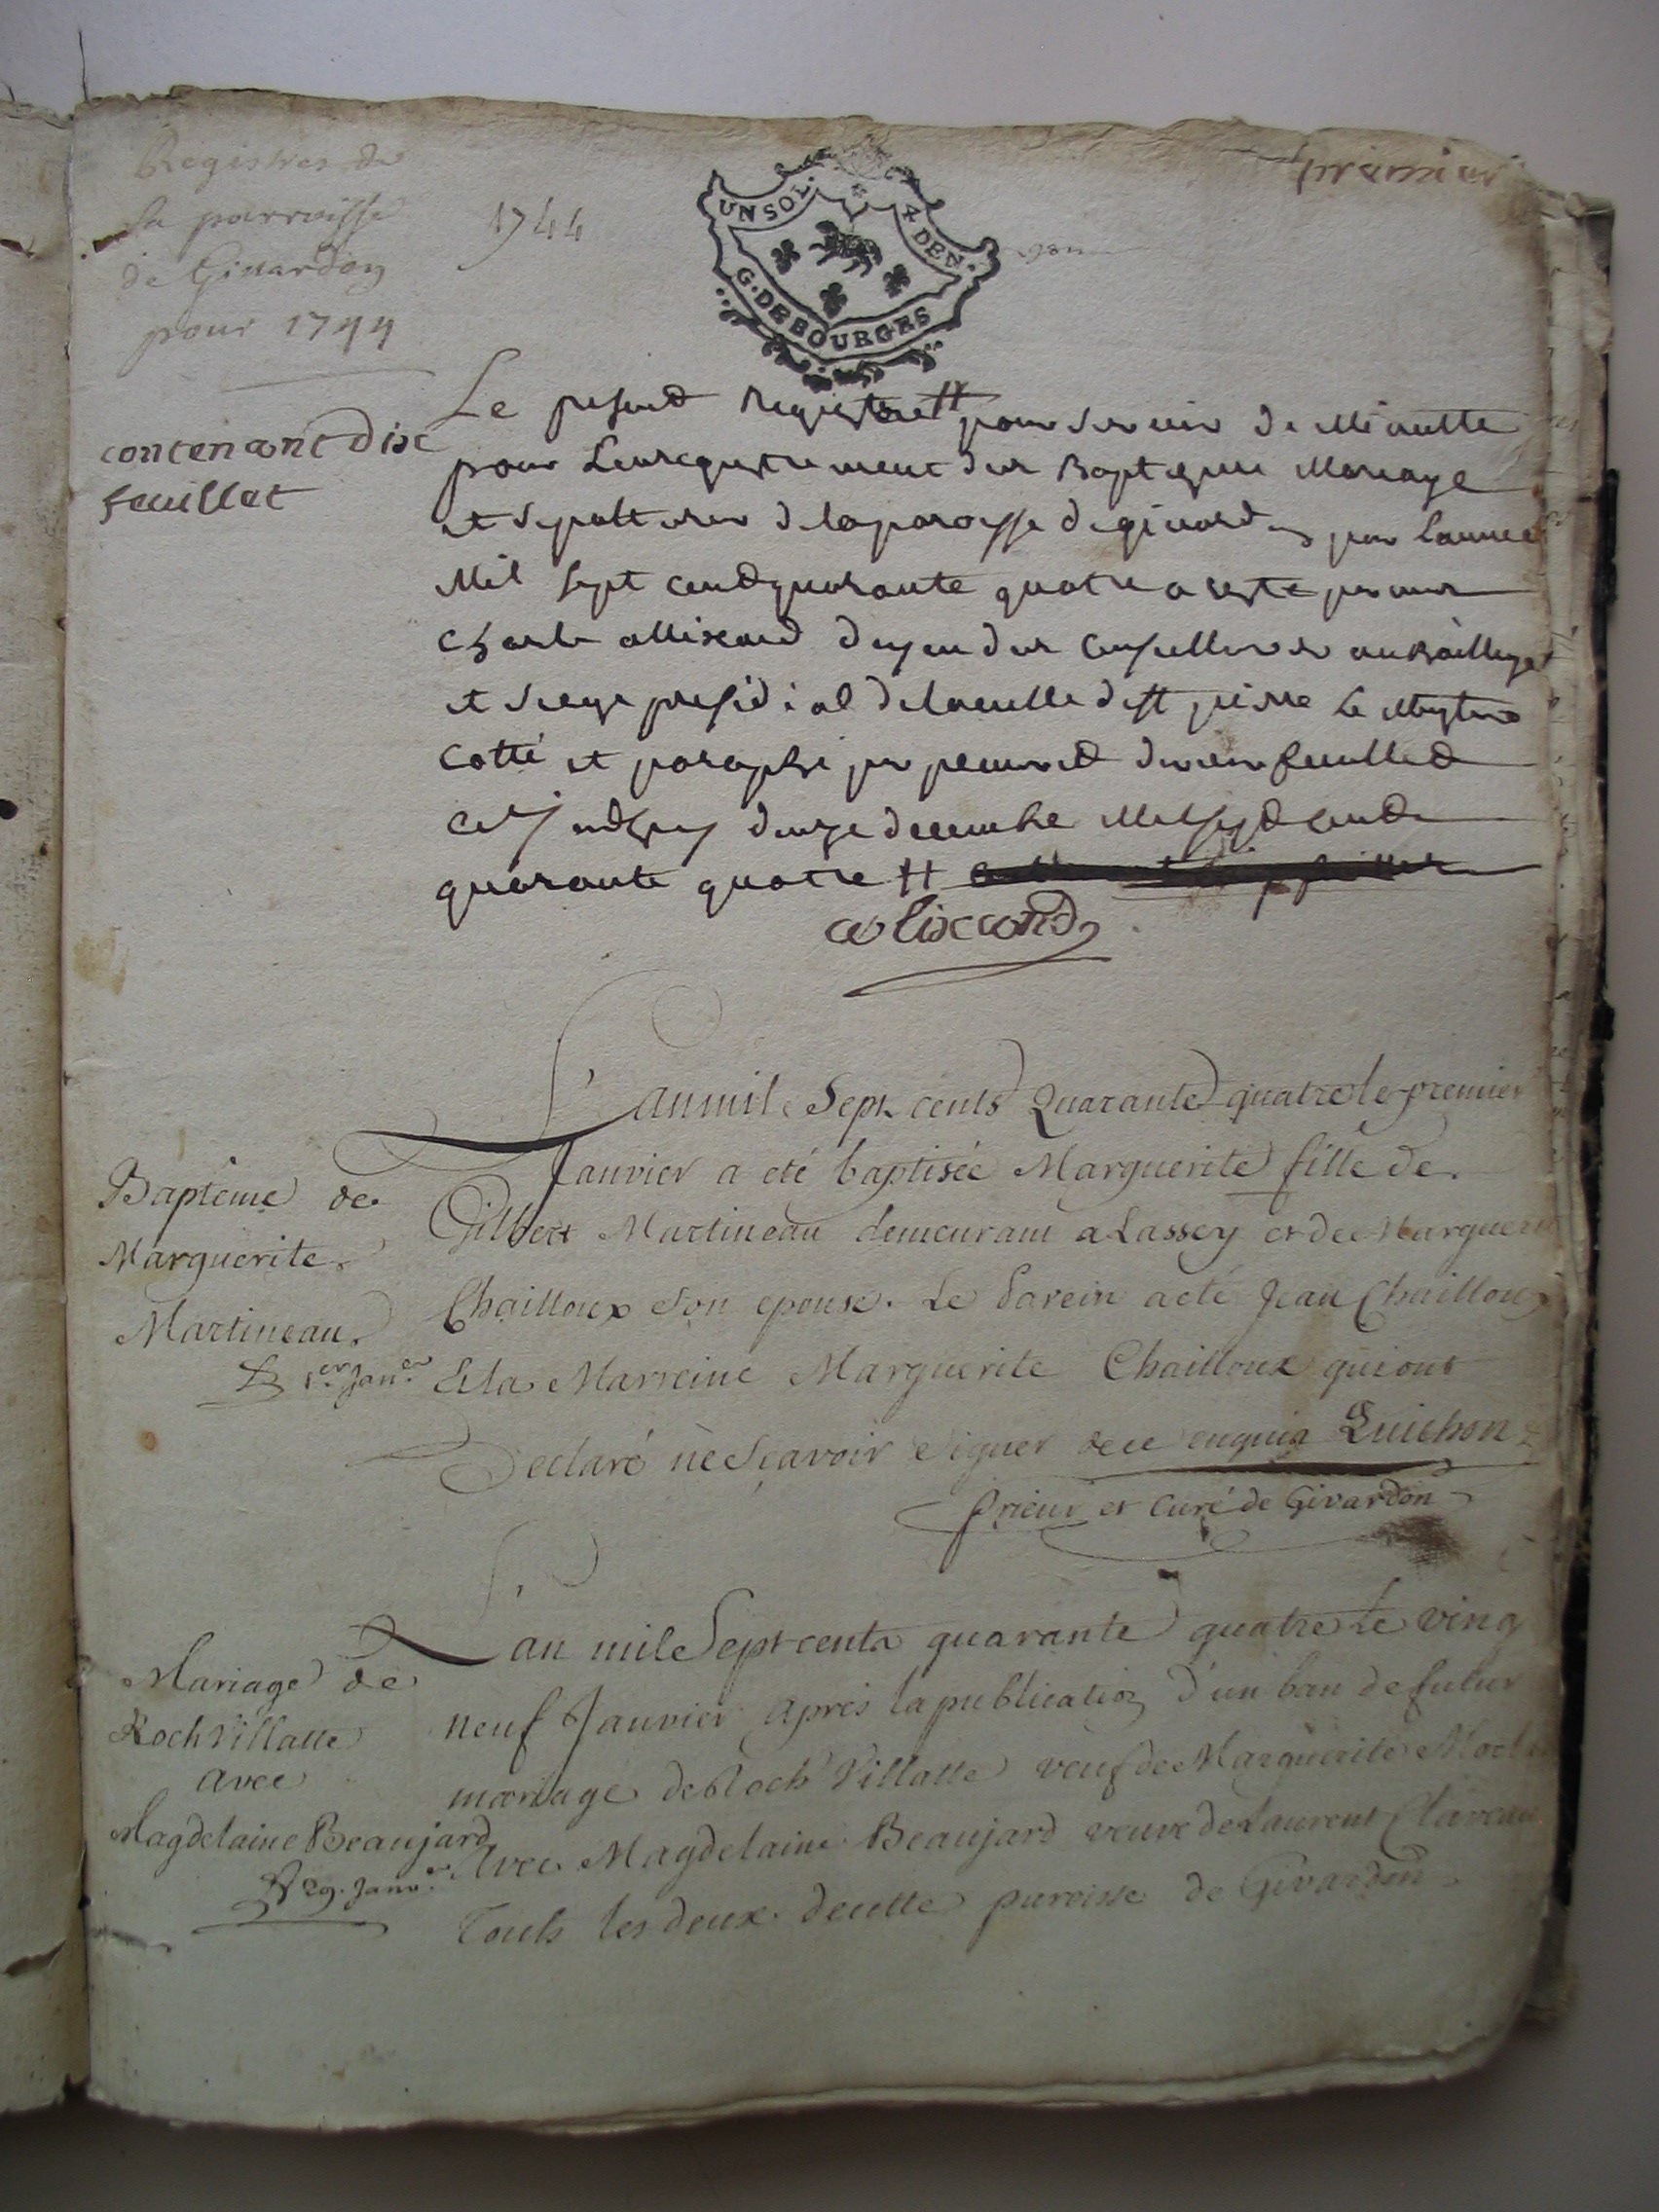 premier
Registres de
la parroisse
de Givardon
pour 1744
1744
UN SOL. 4 DEN.
G. DE BOURGES
contenant dix
feuillet
Le presend Registre # pour servir de Minutte
pour Lenregistrement des Baptesme Mariage
et sepultures de la paroisse de givardon pour Lannee
Mil sept cend quarante quatre a este par nous
Charle allixand doyen des Conseillers au Bailliage
et siege presidial de la ville de St pierre le
Cotté et paraphé par premier et dernier feuilled
decembre Mil sept cend
quarante quatre #
allixand
L'an mil Sept cents Quarante quatre le premier
Janvier a eté baptisée Marguerite fille de
Gilbert Martineau demeurant a Lassey et de Marguerite
Chailloux son epouse. Le Parein a eté Jean Chailloux
Et la Marreine Marguerite Chailloux qui ont
Declaré ne Sçavoir Signer de ce enquis Quichon
prieur et Curé de Givardon
Baptême de
Marguerite
Martineau
Le 1.er Jan.er
L'an mil Sept cents quarante quatre le ving
neuf Janvier après la publication d'un ban de futur
mariage de Roch Villatte veuf de Marguerite
Avec Magdelaine Beaujard veuve de Laurent Claveau
Touts les deux de cette paroisse de Givardon
Mariage de
Roch Villatte
avec
Magdelaine Beaujard
Le 29. Janv.er